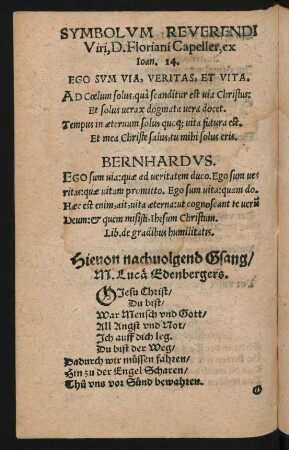 SYMBOLVM REVERENDI
Viri, D. Floriani Capeller, ex
Ioan. 14.
EGO SVM VIA, VERITAS, ET VITA.
AD Cœlum solus: quà scanditur est uia Christus:
Et solus uerax dogmata uera docet.
Tempus in æternum solus quoq; uita futura est.
Et mea Christe salus: tu mihi solus eris.
BERNHARDVS.
EGO sum uia: quæ ad ueritatem duco. Ego sum ue=
ritas: quæ uitam promitto. Ego sum uita: quam do.
Hæc est enim, ait, uita æterna: ut cognoscant te uerū
Deum: & quem misisti. Ihesum Christum.
Lib. de gradibus humilitatis.
Hieuon nachuolgend Gsang/
M. Lucā Edenbergers.
O Jesu Christ/
Du bist/
War Mensch vnd Gott/
All Angst vnd Not/
Ich auff dich leg.
Du bist der Weg/
Dadurch wir müssen fahren/
Hin zu der Engel Scharen/
Thů vns vor Sünd bewahren.